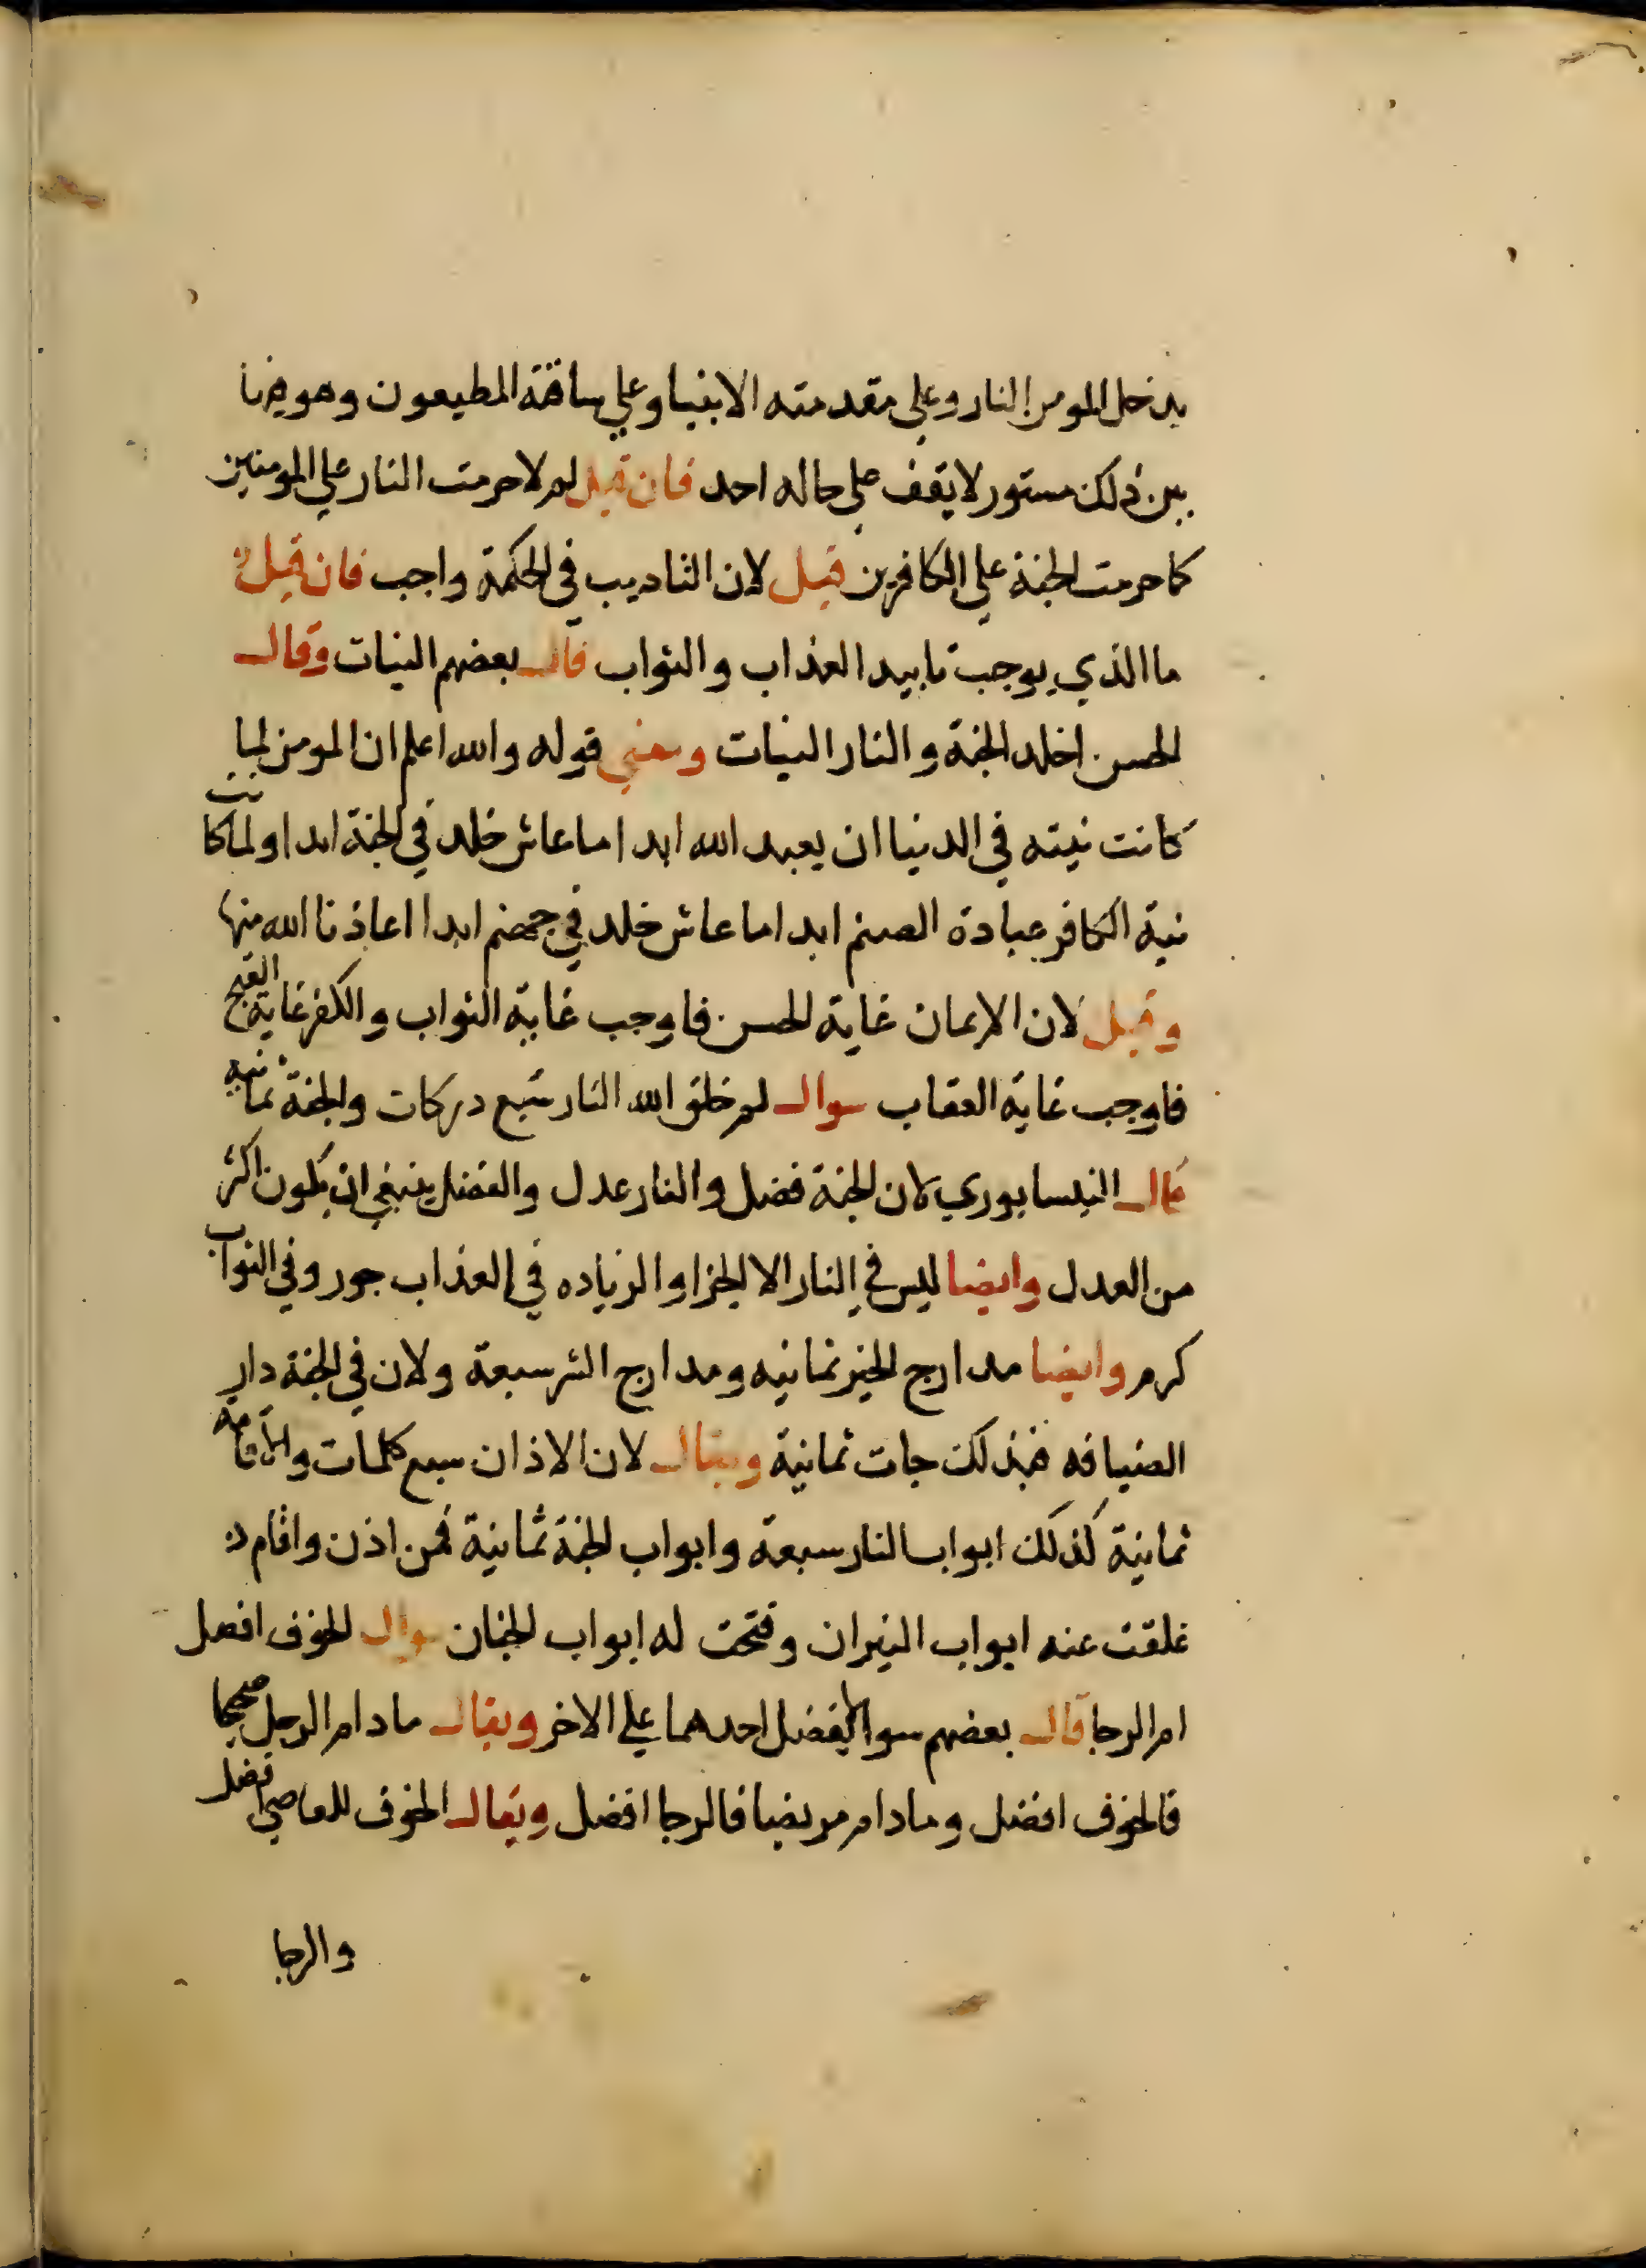 يدخل المومن النار وعلي مقدمته الانبيا وعلي ساقته المطيعون وهو فيما
بين ذلك مستور لا يقف علي حاله احد فان قيل لم لا حرمت النار علي المومنين
كما حرمت الجنة علي الكافرين قيل لان التاديب في الحكمة واجب فان قيل
ما الذي يوجب تابيد العذاب والثواب قال بعضهم النيات وقال
الحسن اخلد الجنة والنار النيات ومعني قوله والله اعلم ان المومن لما
كانت نيته في الدنيا ان يعبد الله ابدا ما عاش خلد في الجنة ابدا ولما كانت
نية الكافر عبادة الصنم ابدا ما عاش خلد في جهنم ابدا اعاذنا الله منها
وقيل لان الايمان غاية الحسن فاوجب غاية الثواب والكفر غاية القبح
فاوجب غاية العقاب سوال لم خلق الله النار سبع دركات والجنة ثمانيه
قال النيسابوري لان الجنة فضل والنار عدل والفضل ينبغي ان يكون اكثر
من العدل وايضا ليس في النار الا الجزا والزياده في العذاب جور وفي الثواب
كرم وايضا مدارج الخير ثمانيه ومدارج الشر سبعة ولان في الجنة دار
الضيافه فبذلك جات ثمانية ويقال لان الاذان سبع كلمات والاقامه
ثمانية كذلك ابواب النار سبعة وابواب الجنة ثمانية فمن اذن واقام
غلقت عنه ابواب النيران وفتحت له ابواب الجنان سوال الخوف افضل
ام الرجا قال بعضهم سوا لا يفضل احدهما علي الاخر ويقال ما دام الرجل صحيحا
فالخوف افضل وما دام مريضا فالرجا افضل ويقال الخوف للعاصي افضل
والرجا